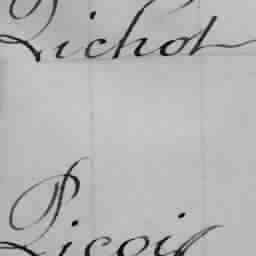 Pichot
Picois